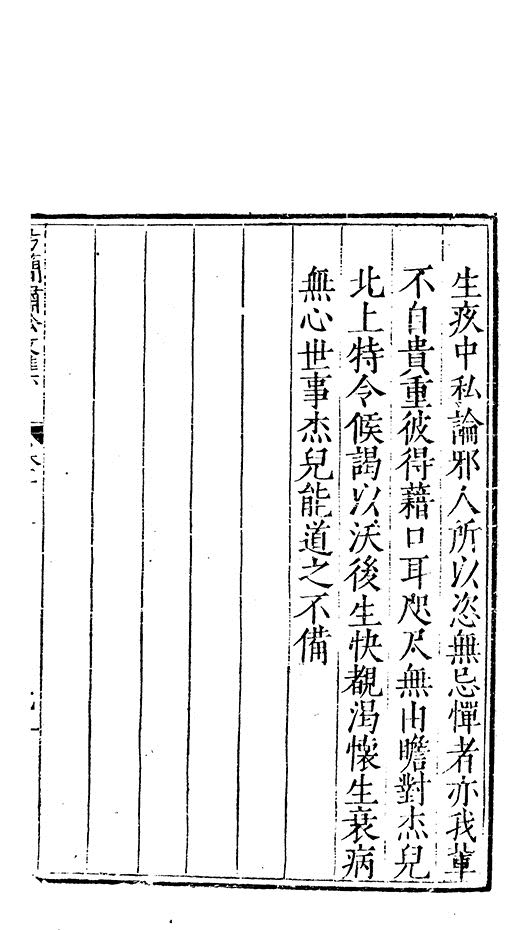 生疚中私論邪人所以恣無忌憚者亦我輩
不自貴重彼得藉口耳咫尺無由瞻對杰兒
北上特令候謁以沃後生快覩渴懷生衰病
無心世事杰兒能道之不備